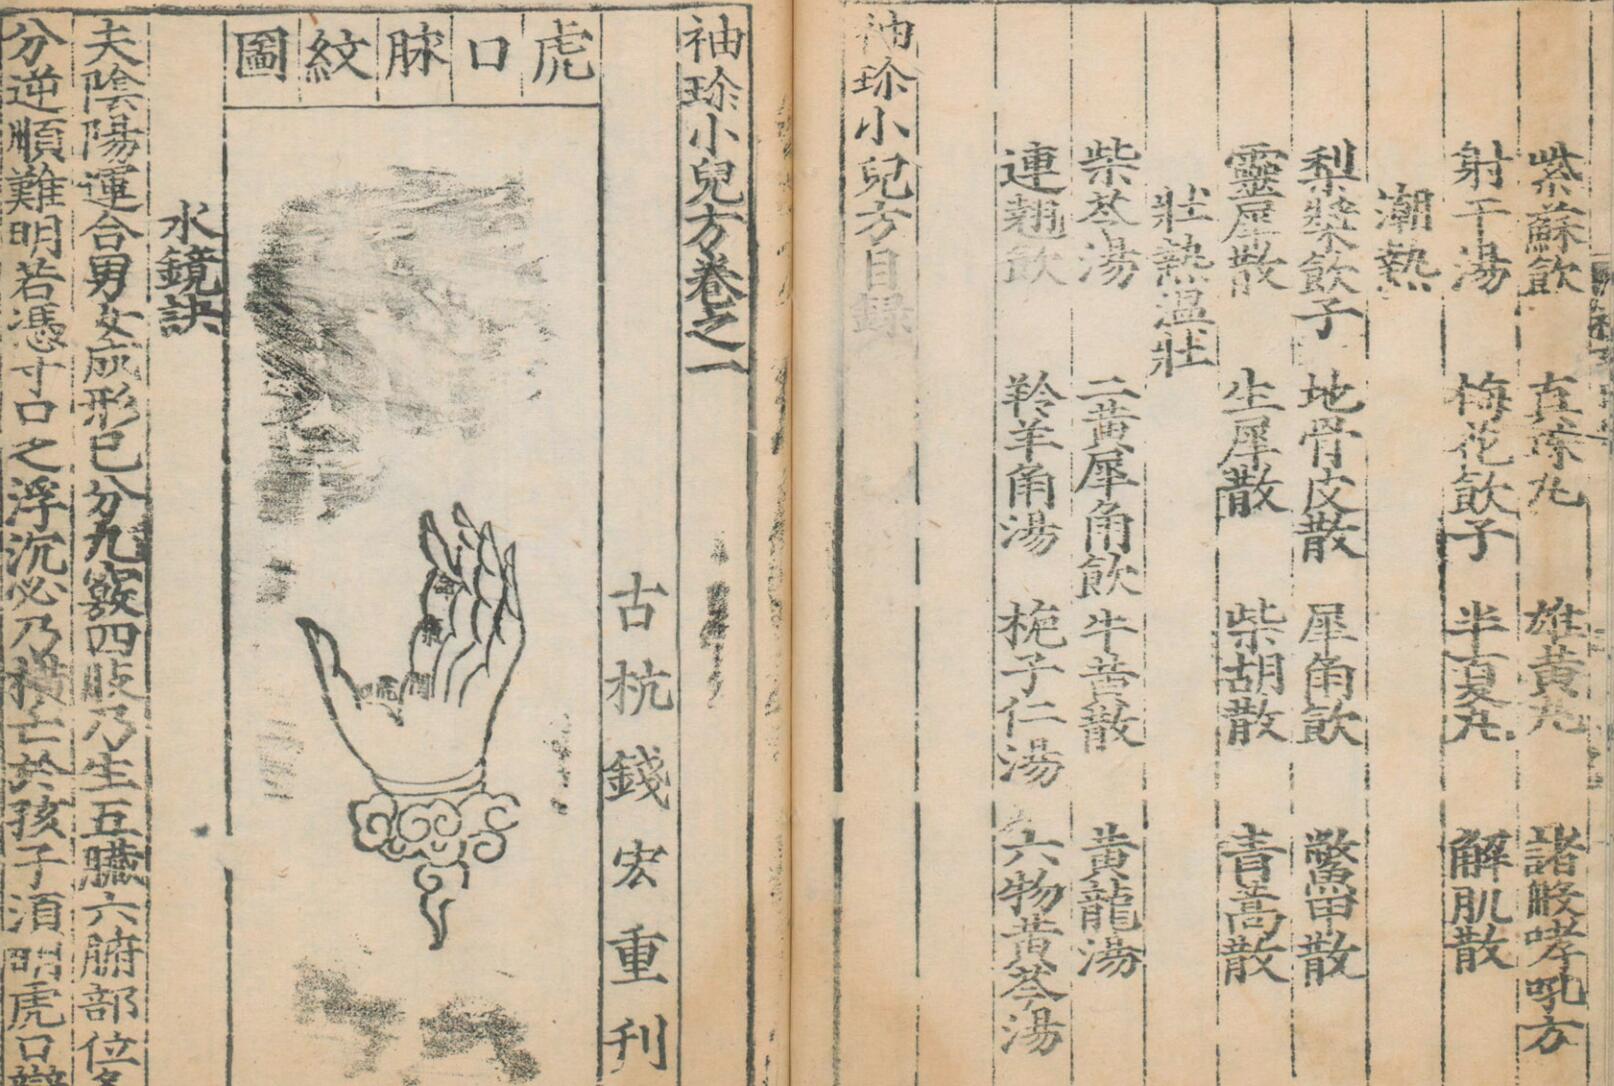 紫蘇飲 真珠丸 雄黃丸 諸齁哮吼方
射干湯 梅花飲子 半夏丸 解肌散
潮熱
梨漿飲子 地骨皮散 犀角飲 鱉甲散
靈犀散 生犀散 柴胡散 青蒿散
壯熱溫壯
柴苓湯 二黃犀角飲 牛黃散 黃龍湯
連翹飲 羚羊角湯 梔子仁湯 六物黃芩湯
袖珍小兒方目錄
袖珍小兒方卷之一
古杭錢宏重刊
虎口脉紋圖
水鏡訣
夫陰陽運合男女成形已分九竅四肢乃生五臟六腑部位各
分逆順難明若憑寸口之浮沉必乃橫亡於孩子須明虎口辯